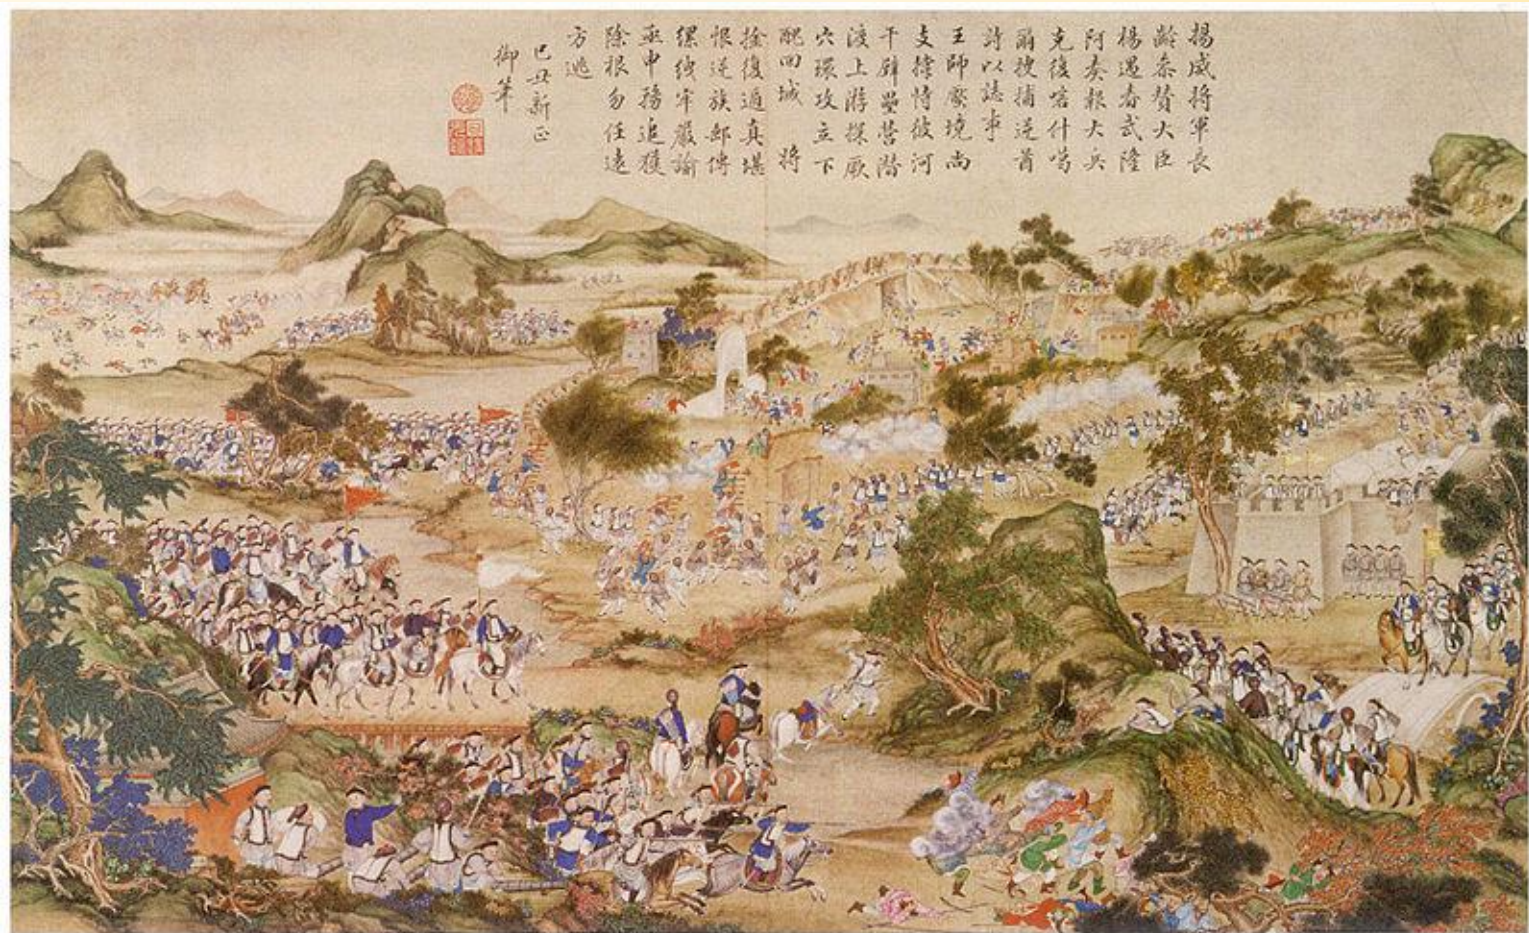 揚威將軍長
齡參贊大臣
楊遇春武隆
阿奏報大兵
克復喀什噶
爾搜捕逆首
詩以誌事
王師壓境尚
支撐恃彼河
干壘營
渡上游探厥
穴環攻立下
醜回城 將
擒復遁真堪
恨逆族郵傳
縲絏牢嚴諭
亟申務追獲
除根勿任遠
方逃
己丑新正
御筆